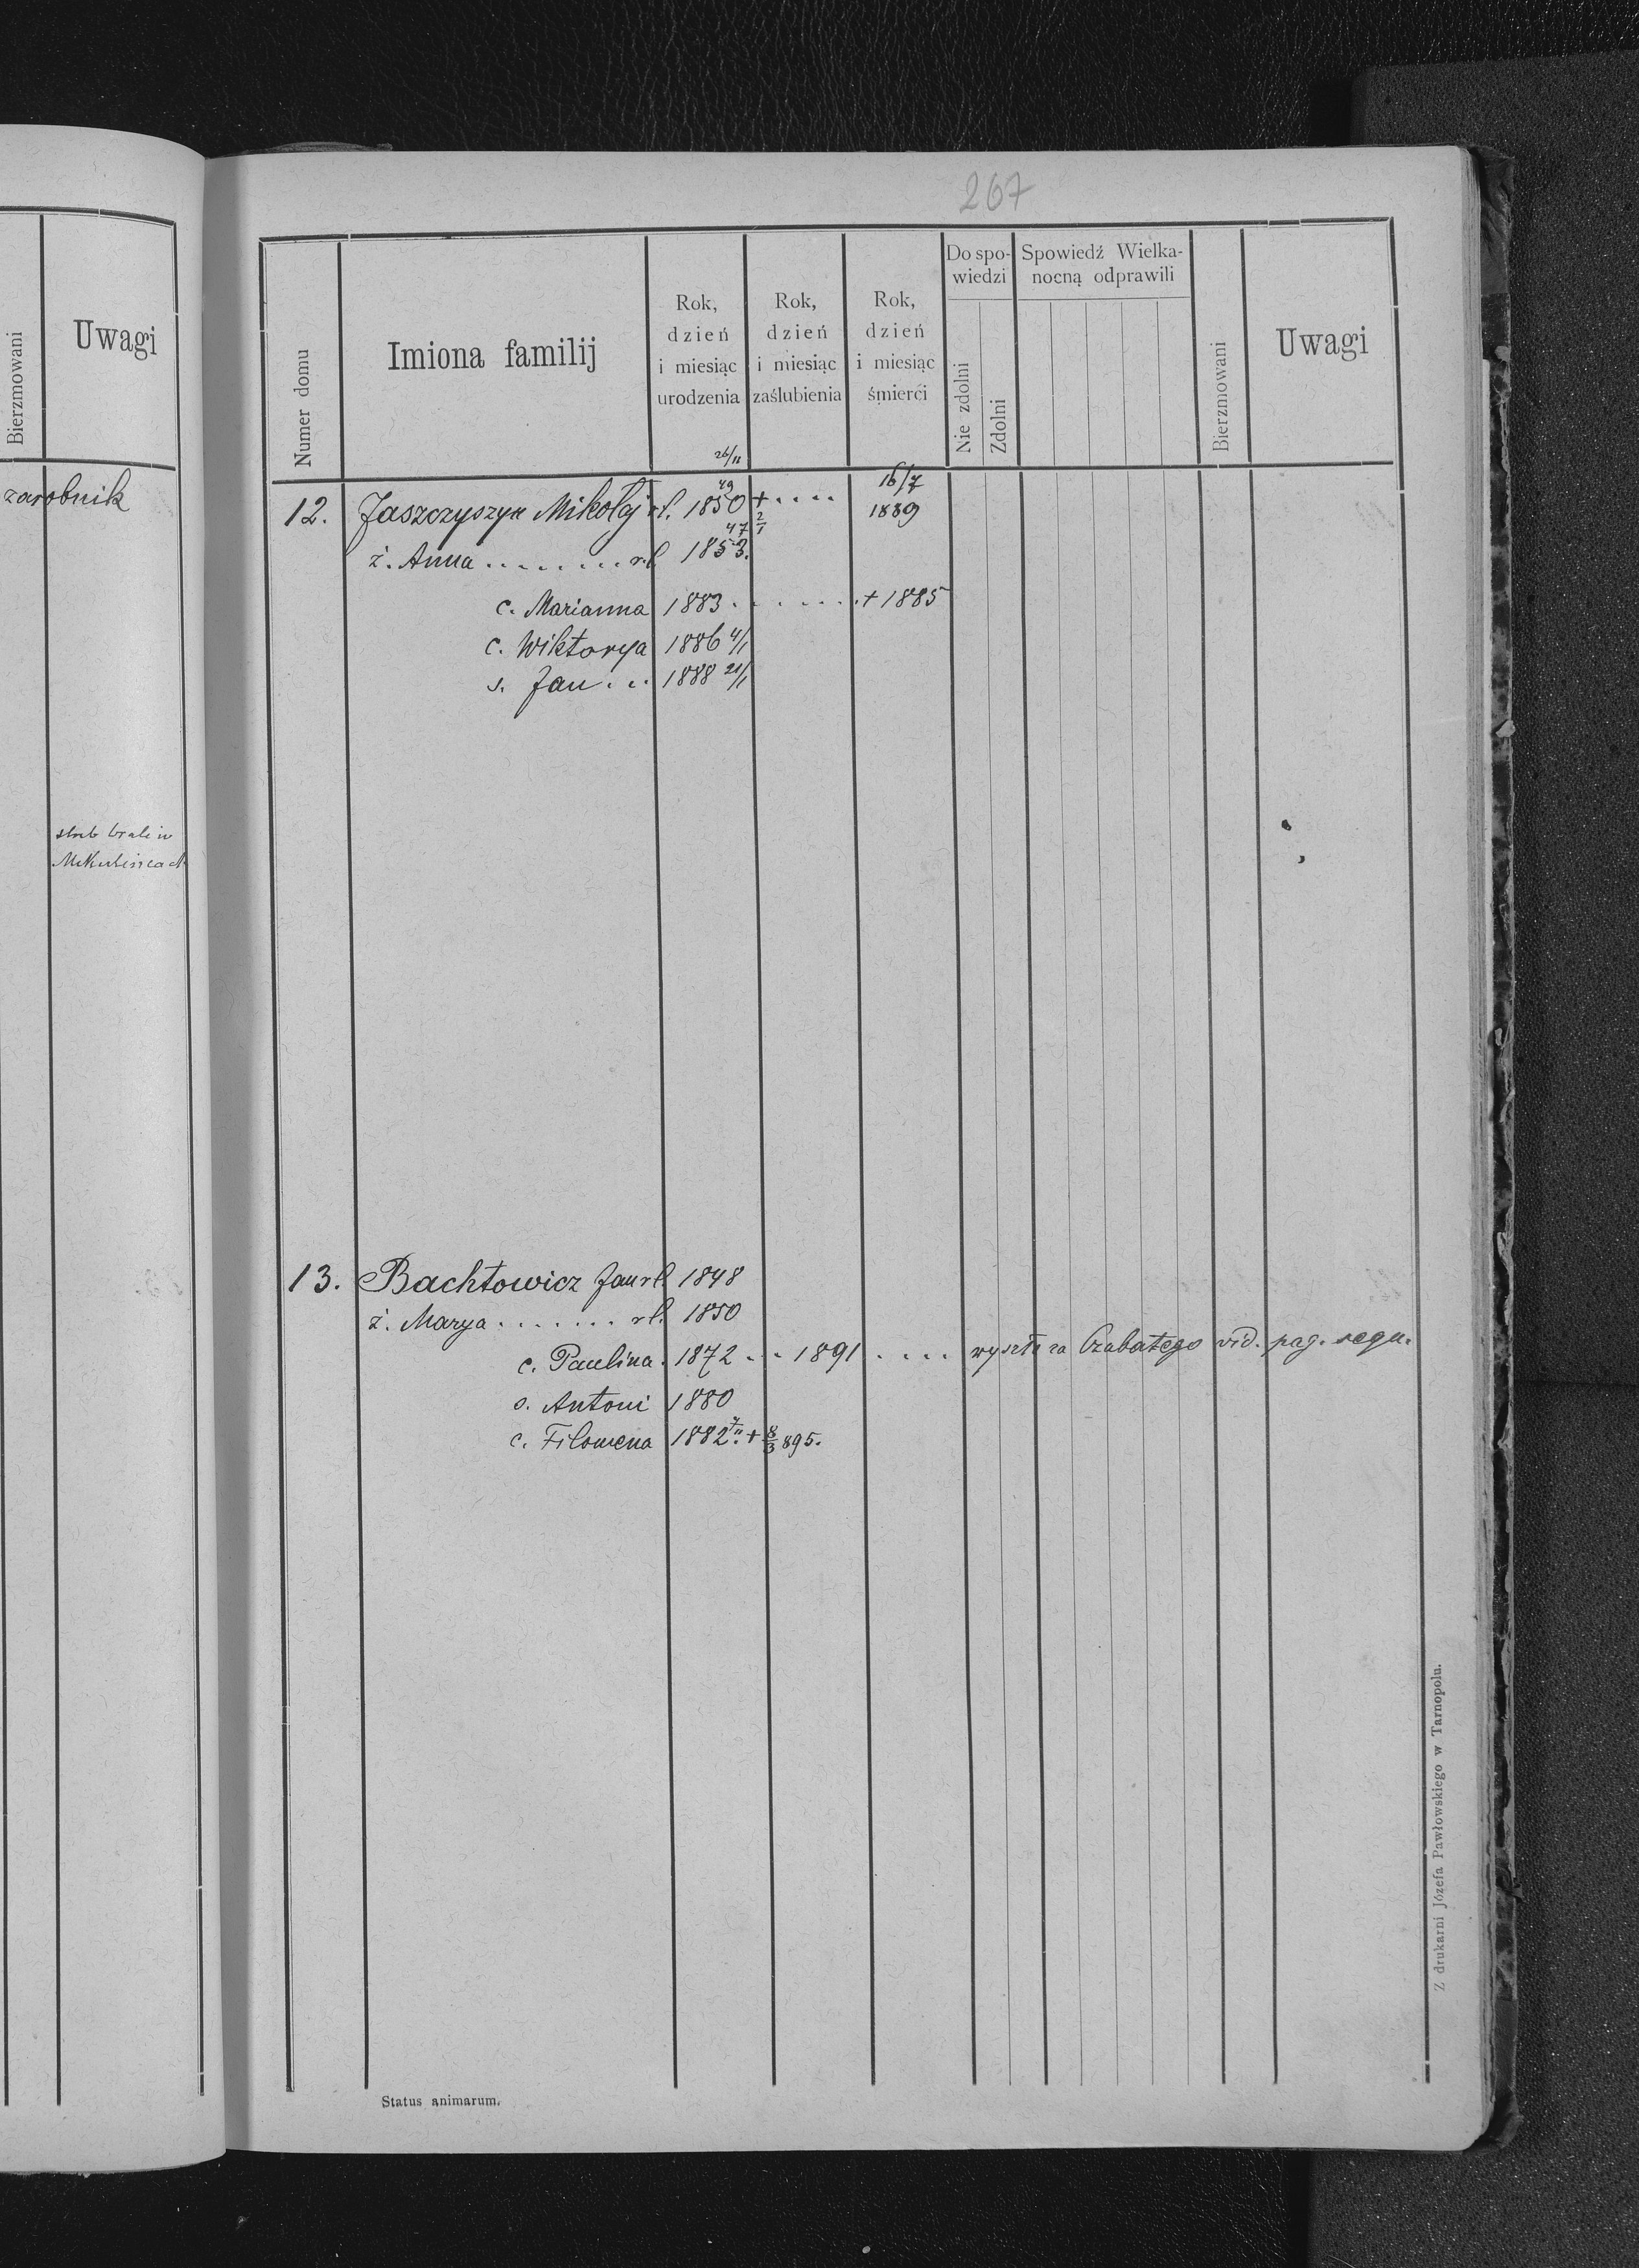 Bierzmowani
Uwagi
zarobnik
ślub brali w
Mikulińcach
267
Numer domu
Imiona familij
Rok,
dzień
i miesiąc
urodzenia
Rok,
dzień
i miesiąc
zaślubienia
Rok,
dzień
i miesiąc
śmierci
Do spo-
wiedzi
Nie zdolni
Zdolni
Spowiedź Wielka-
nocną odprawili
Bierzmowani
Uwagi
26/11
49 16/7
12. Jaszczyszyn Mikołaj rl. 1850 + ..... 1889
47 2/1
ż. Anna ........ rl 1853.
c. Marianna 1883 ....... + 1885
c. Wiktorya 1886 4/1
s. Jan ... 1888 21/1
13. Bachtowicz Jan rl 1848
ż. Marya ....... rl. 1850
c. Paulina. 1872 ... 1891 .... wyszła za Czabatego vid. pag. sequ.
s. Antoni 1880
c. Filomena 1882 7/11. + 8/3 895.
Status animarum.
Z drukarni Józefa Pawłowskiego w Tarnopolu.